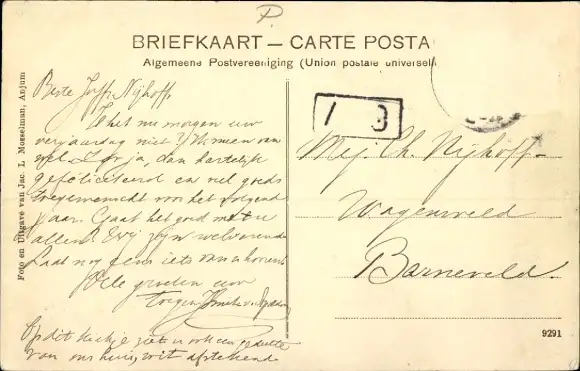 P.
BRIEFKAART — CARTE POSTA
Algemeene Postvereeniging (Union postale universel
Foto en Uitgave van Jac. L. Mosselman, Anjum
Beste Juffr. Nijhoff,
Is het nu morgen uw
verjaardag niet? Ik meen van
wel. Zoo ja, dan hartelijk
gefeliciteerd en veel goeds
toegewenscht voor het volgend
jaar. Gaat het goed met u
allen? Wij zijn welvarende
Laat nog eens iets van u hooren
Vele groeten uw
1 3
Mej. Ch. Nijhoff
Wagenveld
Barneveld.
Op dit kiekje ziet u ook een gedeelte
van ons huis, wit afstekende
9291